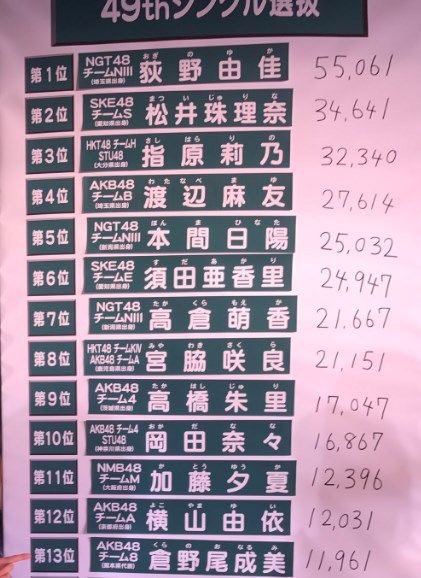 49thシングル選抜
第1位 NGT48 チームNIII (埼玉県出身) 荻野由佳 おぎのゆか 55,061
第2位 SKE48 チームS (愛知県出身) 松井珠理奈 まついじゅりな 34,641
第3位 HKT48 チームH STU48 (大分県出身) 指原莉乃 さしはらりの 32,340
第4位 AKB48 チームB (埼玉県出身) 渡辺麻友 わたなべまゆ 27,614
第5位 NGT48 チームNIII (新潟県出身) 本間日陽 ほんまひなた 25,032
第6位 SKE48 チームE (愛知県出身) 須田亜香里 すだあかり 24,947
第7位 NGT48 チームNIII (新潟県出身) 高倉萌香 たかくらもえか 21,667
第8位 HKT48 チームKIV AKB48 チームA (鹿児島県出身) 宮脇咲良 みやわきさくら 21,151
第9位 AKB48 チーム4 (茨城県出身) 高橋朱里 たかはしじゅり 17,047
第10位 AKB48 チーム4 STU48 (神奈川県出身) 岡田奈々 おかだなな 16,867
第11位 NMB48 チームM (大阪府出身) 加藤夕夏 かとうゆうか 12,396
第12位 AKB48 チームA (京都府出身) 横山由依 よこやまゆい 12,031
第13位 AKB48 チーム8 (熊本県代表) 倉野尾成美 くらのおなるみ 11,961